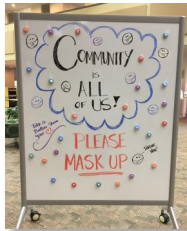 COMMUNITY
IS
ALL
OF US!
PLEASE
MASK UP